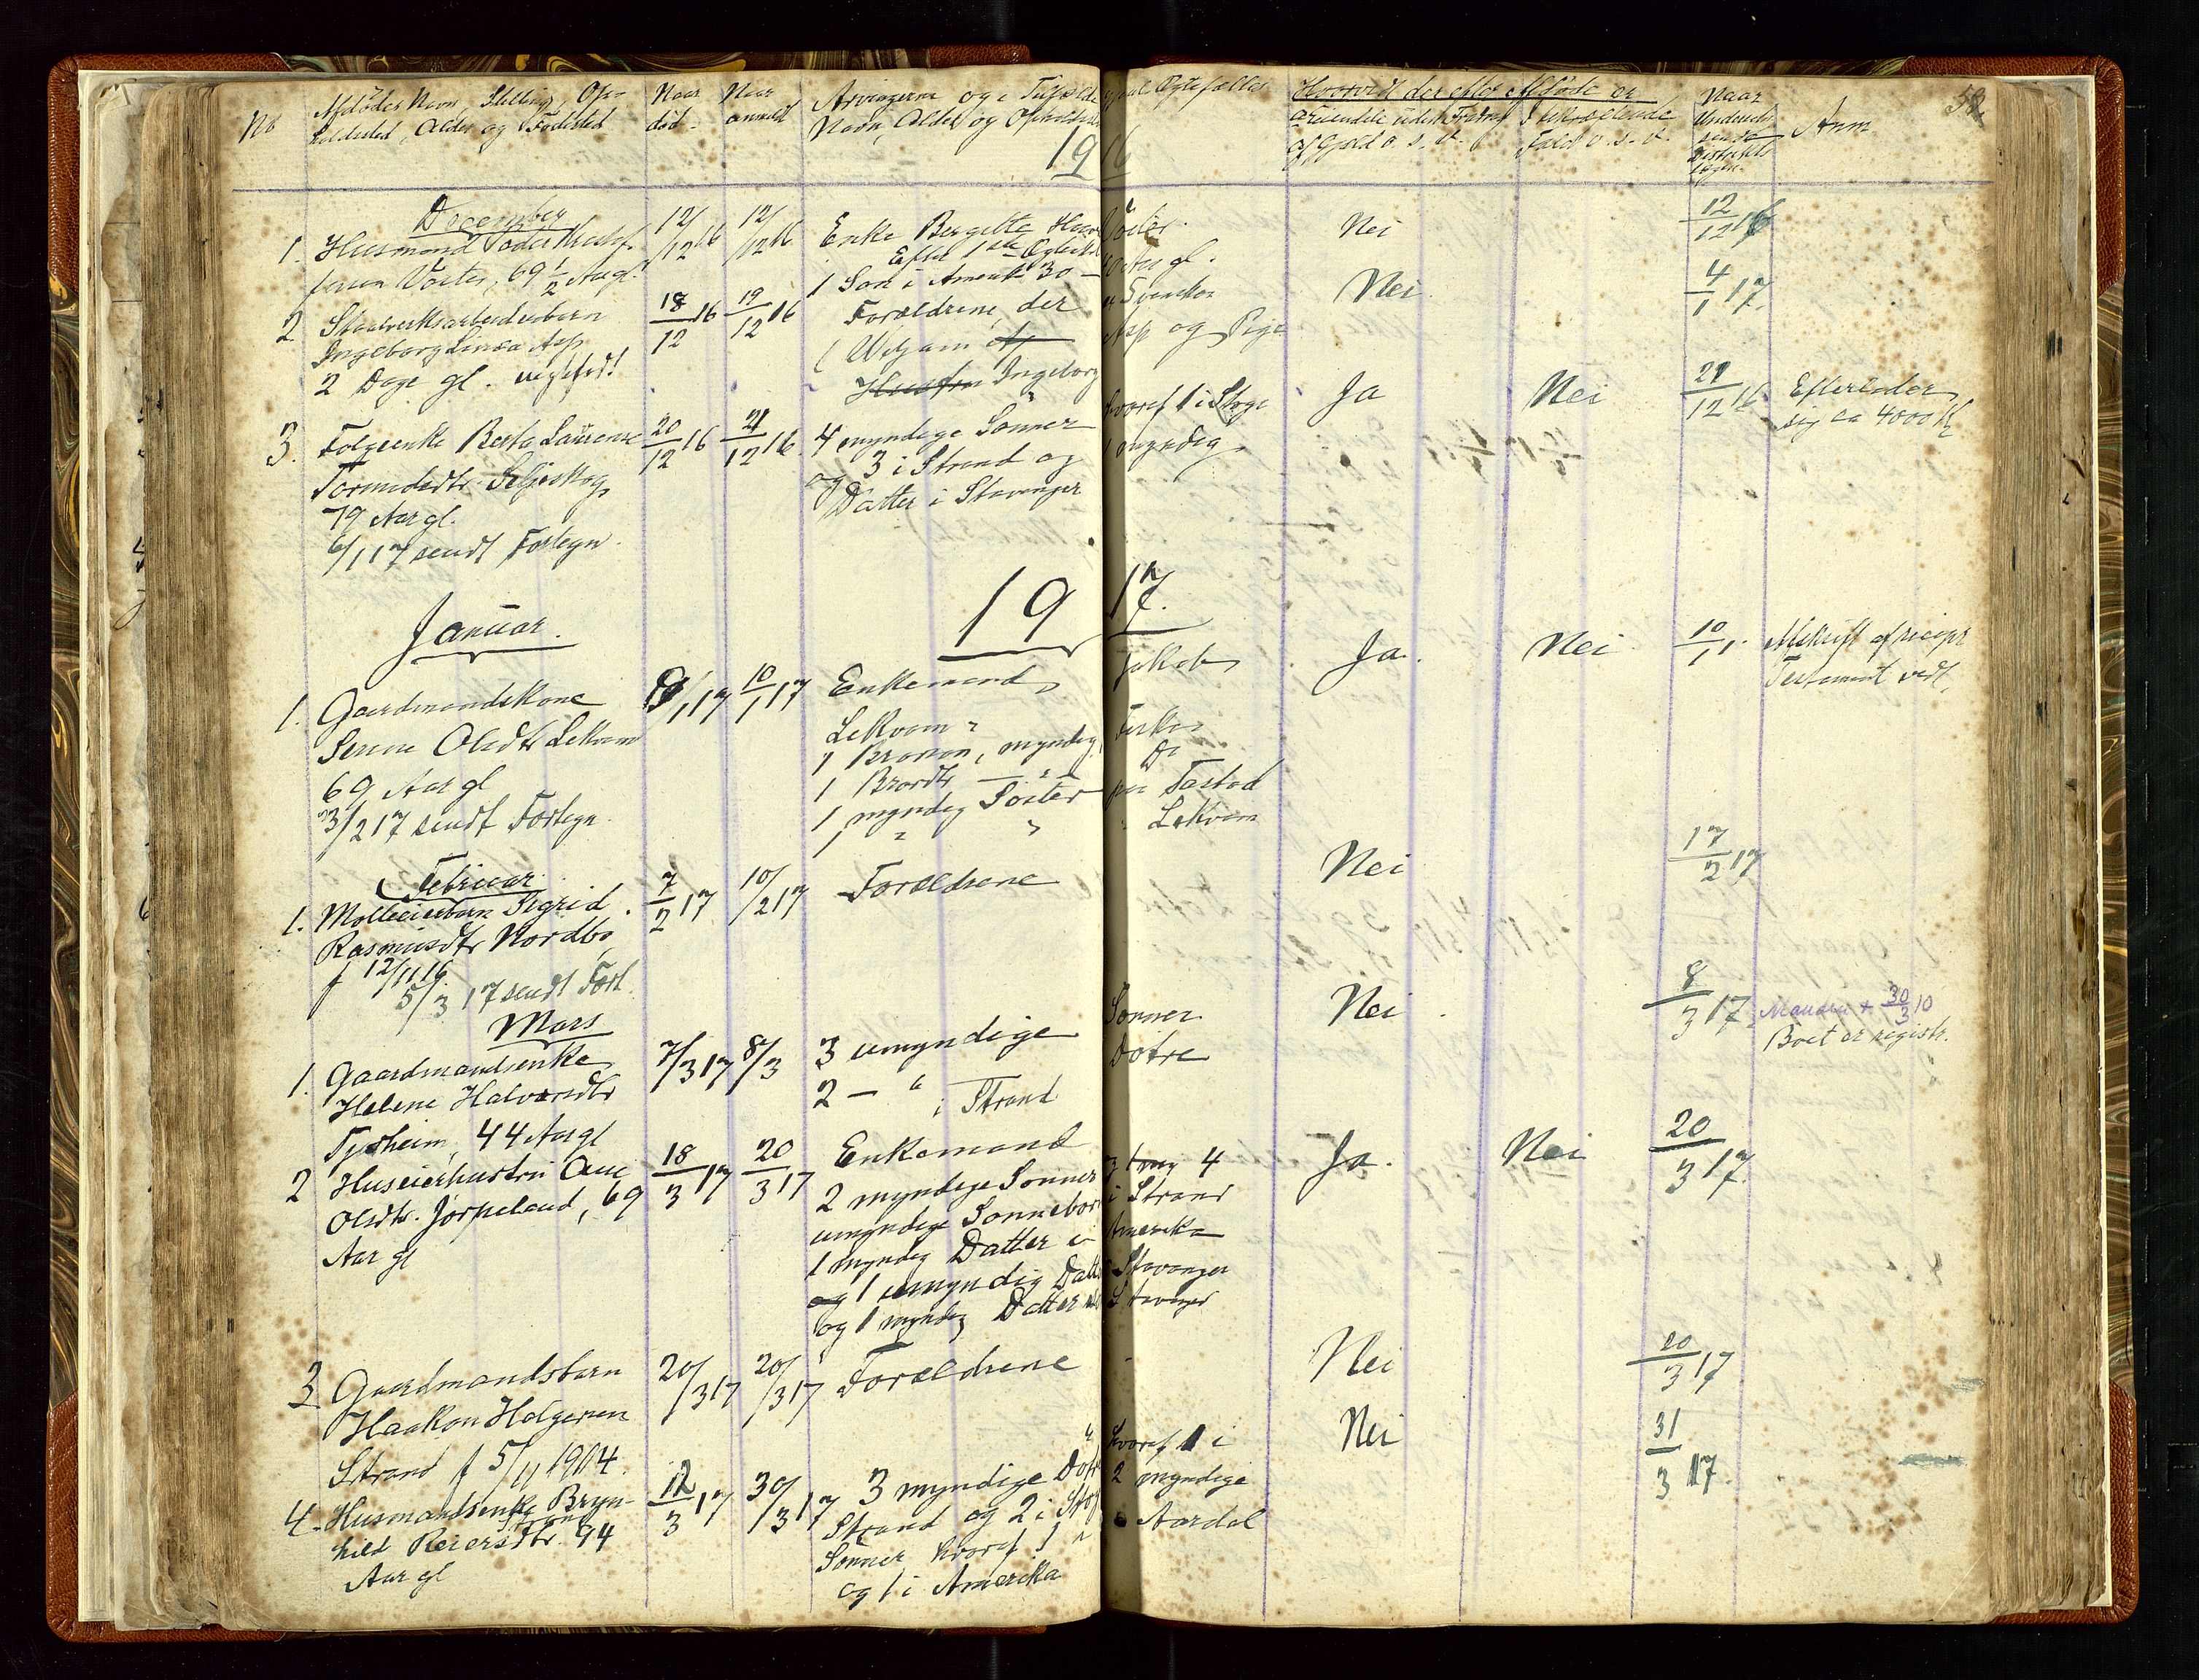 No Afdødes Navn, Stilling, Op-
holdssted, Alder og Fødested
Naar
død.
Naar
anmeldt
Arvingerne og i Tilfælde Ægtefælles
Navn, Alder og Opholdssted
Hvorvidt der efter Afdøde er
uden
af Gjæld o. s. v.
I
Fald o. s. v.
Naar
Anm
52
1916
December
1. Husmand Peder
Vøster, 69 1/2 Aar gl.
12/12 16
12/12 16
Enke Bergitte
Efter 1ste
1 Søn i Amerika 30 — Aar gl.
Nei
12/12 16
2 Staalverksarbeiderbarn
Ingeborg Linea Asp
2 Dage gl.
18/12 16
19/12 16
Forældrene, der
Svenske
Asp og Pige
Hustru Ingeborg
Nei
4/1 17.
3. Folgeenke Berta Laurense
Tormodsdtr.
79 Aar gl.
6/1 17 sendt Fortegn.
20/12 16
21/12 16.
4 myndige Sønner hvoraf 1 i
3 i Strand og 1 myndig
Datter i Stavanger
Ja
Nei
21/12 16
Efterlader
sig ca 4000 Kr
1917.
Januar.
1. Gaardmandskone
Serine Olsdtr Lekvam
69 Aar gl
3/2 17 sendt Fortegn.
/1 17
10/1 17
Enkemand Jakob
Lekvam
1 Brorsøn, myndig,
1 Brordtr — " — Do
1 myndig Søster paa Tastad
1 " " Lekvam
Ja.
Nei
10/1.
Afskrift af
Testament vedl.
Februar.
1. Mølleeierbarn Sigrid
Rasmusdtr Nordbø
f 12/11 16.
5/3 17 sendt Fort.
7/2 17
10/2 17
Forældrene
Nei
17/2 17
Mars
1. Gaardmandsenke
Helene Halvorsdtr
Tysheim, 44 Aar gl
7/3 17
8/3
3 umyndige Sønner
2 — " Døtre
i Strand
Nei
8/3 17.
Manden + 30/3 10
Boet er registr.
2 Huseierhustru Ane
Olsdtr. Jørpeland, 69
Aar gl
18/3 17
20/3 17
Enkemand
2 myndige Sønner i Strand
4
umyndige Sønnebørn Amerika
1 myndig Datter i
og 1 umyndig Datter Stavanger
og 1 myndig Datter Stavanger
Ja.
Nei
20/3 17.
3 Gaardmandsbarn
Haakon Holgersen
Strand f 5/11 1904.
20/3 17
20/3 17
Forældrene
Nei
20/3 17
4. Husmandsenke Bryn-
hild Reiersdtr. 94
Aar gl
12/3 17
30/3 17
3 myndige Døtre hvoraf 1 i
Strand og 2 i 2 myndige
Sønner hvoraf 1 i Aardal
og 1 i Amerika
Nei
31/3 17.